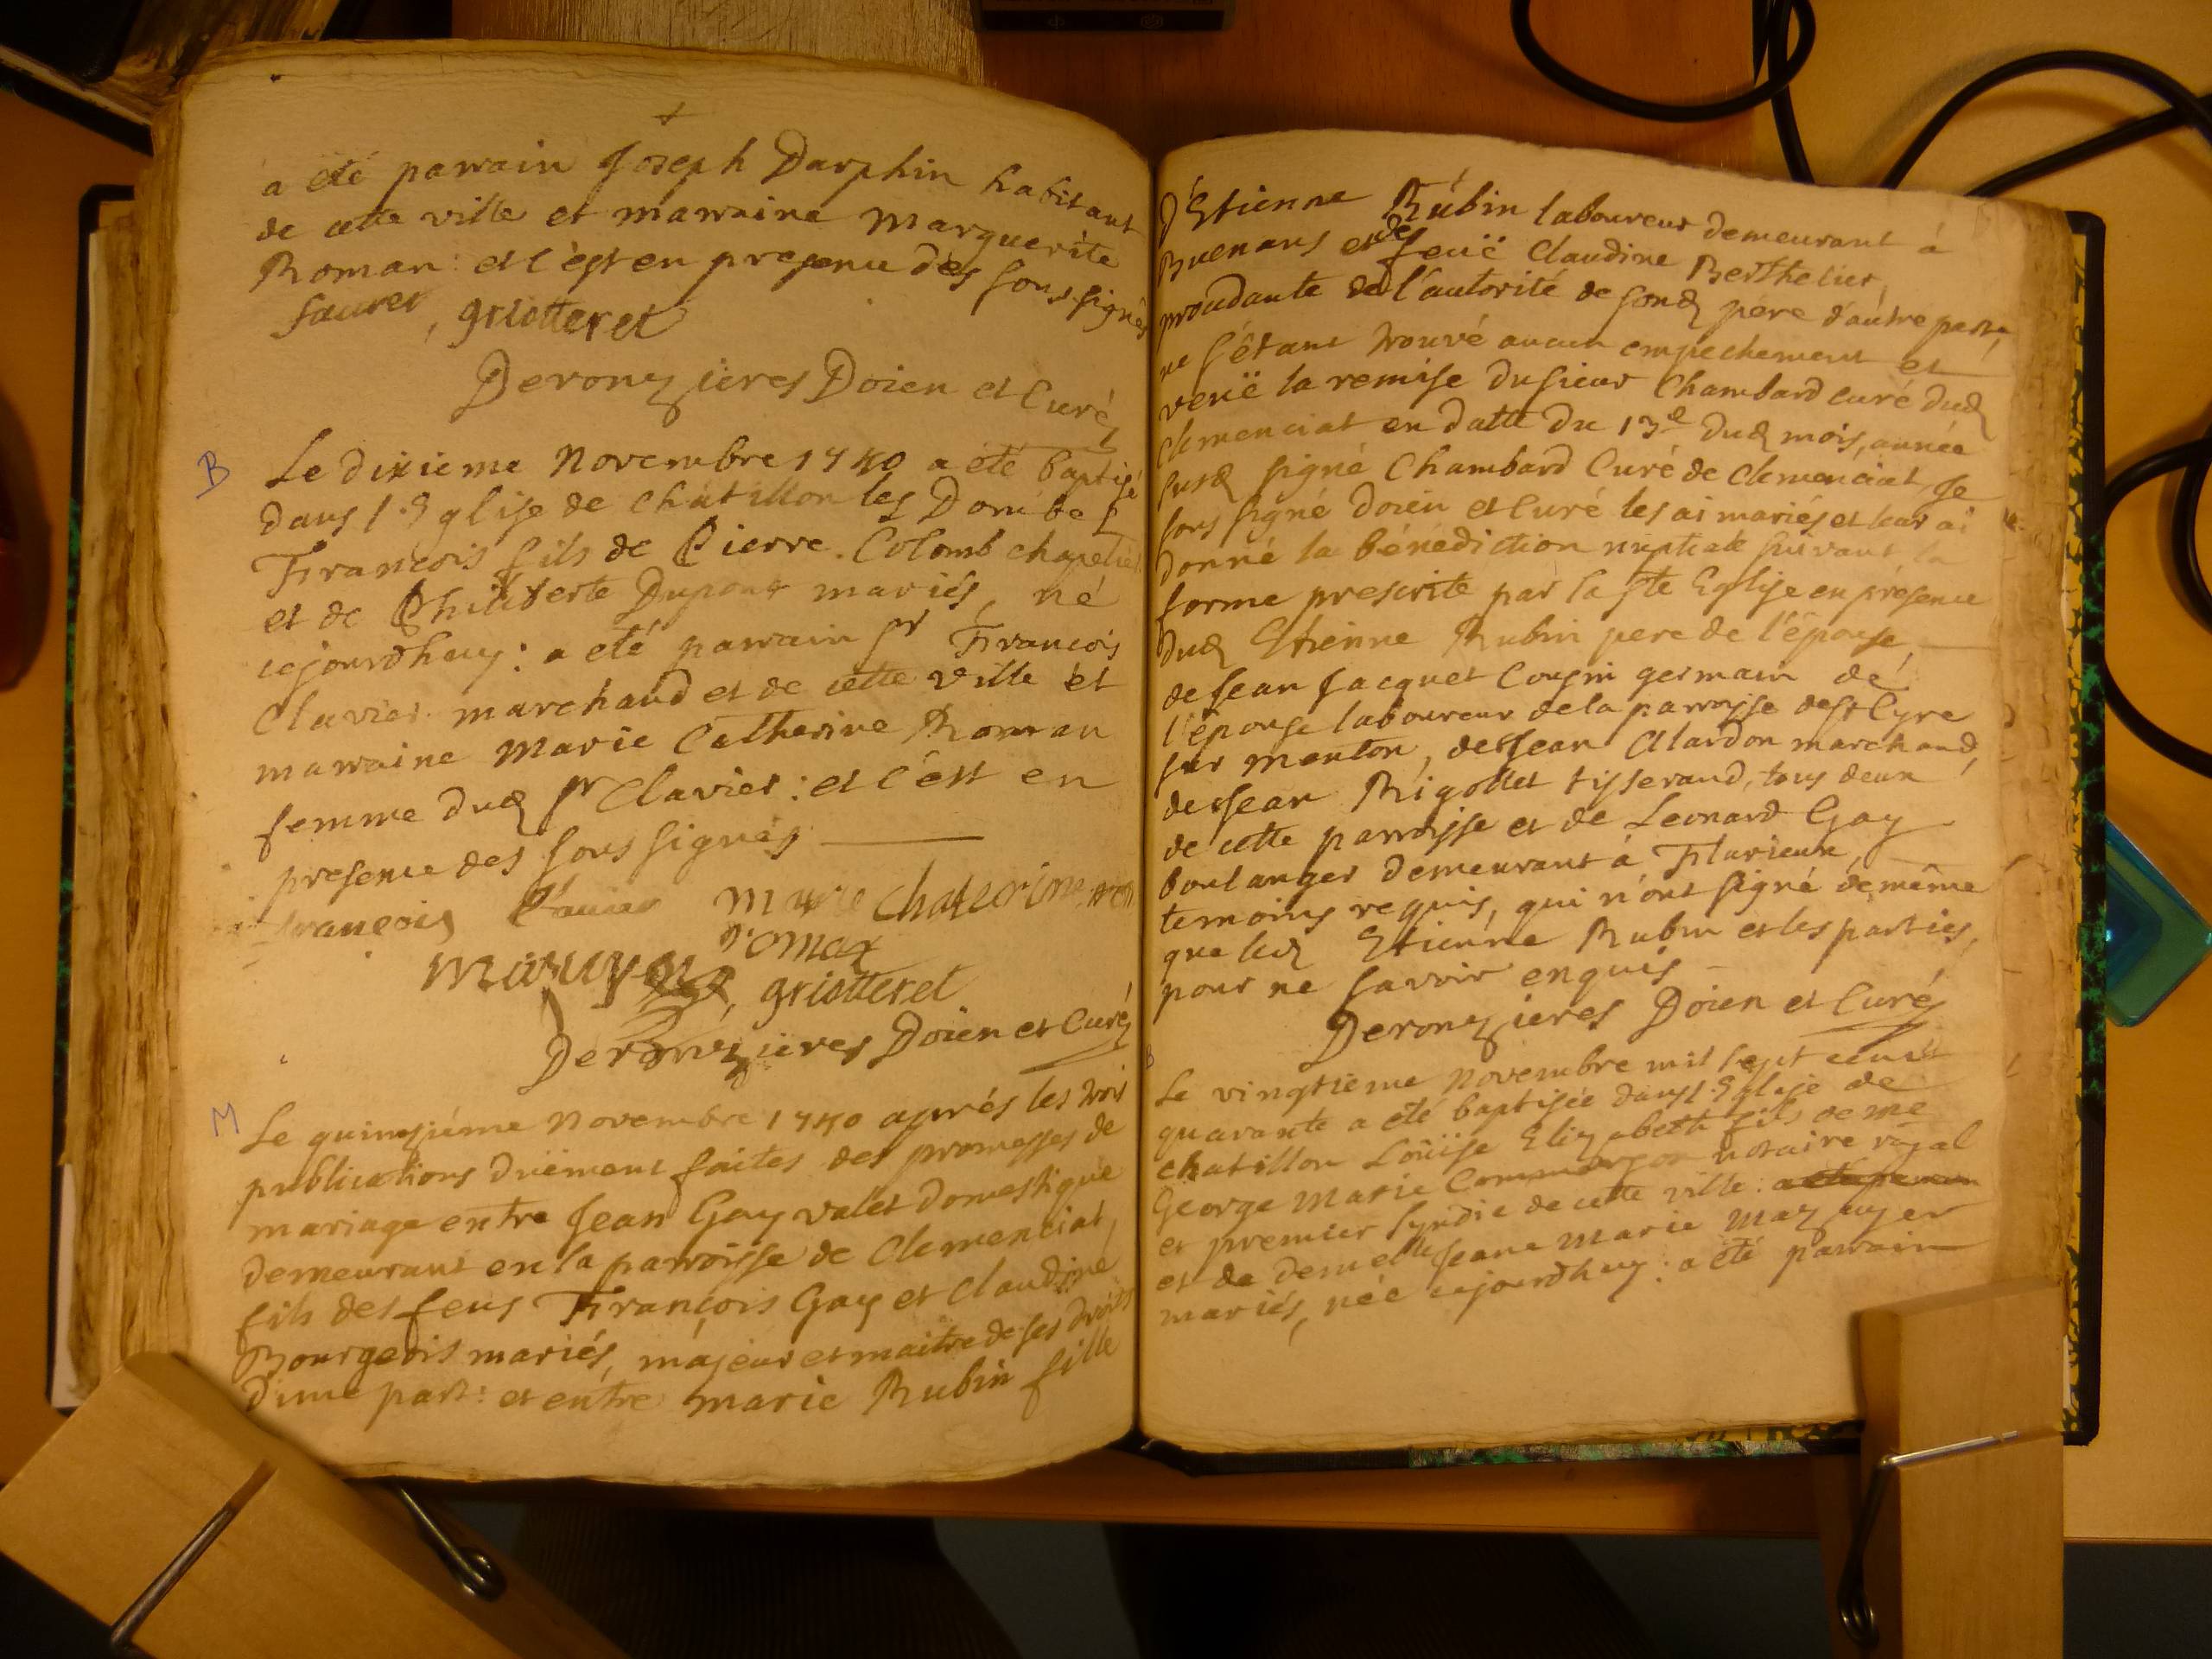 a été parrain Joseph Darphin habitant
de cette ville et marraine Marguerite
Roman : et c'est en presence des sous signés
Saurer, griotteret
Deronzieres Doien et Curé
B
Le dixieme Novembre 1740 a été baptisé
dans l'Eglise de Châtillon les Dombes
François fils de Pierre Colomb chapelier
et de Philiberte Dupont mariés, né
cejourdhuy : a eté parrain sr François
Clavier marchand et de cette ville et
marraine Marie Catherine Roman
femme dud sr Clavier : et c'est en
presence des sous signés
françois Clavier Marie Chaterine
romax
griotteret
Deronzieres Doien et Curé
M
Le quinzième Novembre 1740 aprés les trois
publications düement faites des promesses de
mariage entre Jean Gay valet domestique
demeurant en la parroisse de Clemenciat,
fils des feus François Gay et Claudine
Bourgeois mariés, májeur et maitre de ses droits
d'une part : et entre marie Rubin fille
d'Etienne Rubin laboureur demeurant à
Buenans et de feuë Claudine Berthelier,
procedante de l'autorité de sond pere d'autre part,
ne s'étant trouvé aucun empechement et
veuë la remise du sieur Chambard curé dud
Clemenciat en datte du 13e dud mois, année
susd signé Chambard Curé de Clemenciat, Je
sous signé Doien et Curé les ai mariés et leur ai
donné la bénédiction nuptiale suivant la
forme prescrite par la Ste Eglise en présence
dud Etienne Rubin pere de l'épouse,
de Jean Jacquet Cousin germain de
l'épouse laboureur de la parroisse de St Cyre
sur menton, de Jean Alardon marchand,
de Jean Rigollet tisserand, tous deux
de cette parroisse et de Leonard Gay
boulanger demeurant à Flurieux,
temoins requis, qui n'ont signé de même
que led Etienne Rubin et les parties,
pour ne savoir enquis
Deronzieres Doien et Curé
B
Le vingtieme Novembre mil sept cent
quarante a eté baptisée dans l'Eglise de
chatillon Loüise Elizabeth fils de me
George Marie Commerson notaire royal
et premier syndic de cette ville : a eté parrain
et de demelle Jeane Marie Mazuyer
mariés, née cejourdhuy : a eté parrain